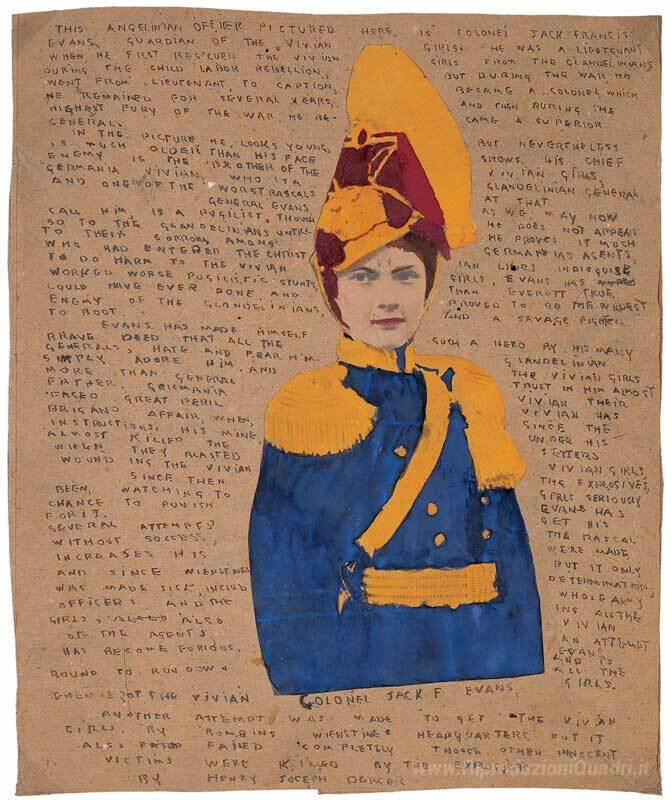 THIS ANGELINIAN OFFICER PICTURED HERE, IS COLONEL JACK FRANCIS
EVANS, GUARDIAN OF THE VIVIAN GIRLS. HE WAS A LIEUTENANT
WHEN HE FIRST RESCUED THE VIVIAN GIRLS FROM THE GLANDELINIANS
DURING THE CHILD LABOR REBELLION, BUT DURING THE WAR HE
WENT FROM LIEUTENANT, TO CAPTION, BECAME A COLONEL WHICH
HE REMAINED FOR SEVERAL YEARS, AND THEN DURING THE
HIGHEST FURY OF THE WAR, HE BE- CAME A SUPERIOR
GENERAL.
IN THE PICTURE HE LOOKS YOUNG, BUT NEVERTHELESS
IS MUCH OLDER THAN HIS FACE SHOWS. HIS CHIEF
ENEMY IS THE BROTHER OF THE VIVIAN GIRLS,
GERMANIA VIVIAN, WHO IS A GLANDELINIAN GENERAL
AND ONE OF THE WORST RASCALS AT THAT.
GENERAL EVANS AS WE MAY NOW
CALL HIM, IS A PUGILIST, THOUGH HE DOES NOT APPEAR
SO TO THE GLANDELINIANS UNTIL HE PROVES IT MUCH
TO THEIR SORROW, AMONG GERMANIAS AGENTS,
WHO HAD ENTERED THE CHRIST IAN LINES INDISGUISE
TO DO HARM TO THE VIVIAN GIRLS, EVANS HAS
WORKED WORSE PUGILISTIC STUNTS, THAN EVERETT TRUE,
COULD HAVE EVER DONE AND PROVED TO BE THE WORST
ENEMY OF THE GLANDELINIANS, AND A SAVAGE FIGHTER
TO BOOT.
EVANS HAS MADE HIMSELF SUCH A HERO BY HIS MANY
BRAVE DEED THAT ALL THE GLANDELINIAN
GENERALS, HATE AND FEAR HIM. THE VIVIAN GIRLS
SIMPLY ADORE HIM, AND TRUST IN HIM ALMOST
MORE THAN GENERAL VIVIAN THEIR
FATHER. GERMANIA VIVIAN HAS
FACED GREAT PERIL SINCE THE
BRIGAND AFFAIR, WHEN, UNDER HIS
INSTRUCTIONS, HIS MINE SETTERS
ALMOST KILLED THE VIVIAN GIRLS
WHEN THEY BLASTED THE EXPLOSIVES,
WOUNDING THE VIVIAN GIRLS SERIOUSLY
SINCE THEN EVANS HAS
BEEN, WATCHING TO GET HIS
CHANCE TO PUNISH THE RASCAL
FOR IT.
SEVERAL ATTEMPTS WERE MADE
WITHOUT SUCCESS, BUT IT ONLY
INCREASES HIS DETERMINATION,
AND SINCE WIENSTINES WHOLE ARMY
WAS MADE SICK, INCLUD ING ALL THE
OFFICERS AND THE VIVIAN
GIRLS, ALSO AN ATTEMPT
OF THE AGENTS EVANS
HAS BECOME FURIOUS. AND IS
BOUND TO RUN DOWN ALL THE
ENEMIES OF THE VIVIAN GIRLS.
COLONEL JACK F EVANS.
ANOTHER ATTEMPT WAS MADE TO GET THE VIVIAN
GIRLS BY BOMBING WIENSTINES HEADQUARTERS BUT IT
ALSO FAILED COMPLETELY THOUGH OTHER INNOCENT
VICTIMS WERE KILLED BY THE EXPLOSION
BY HENRY JOSEPH DARGER
www.RiproduzioniQuadri.it